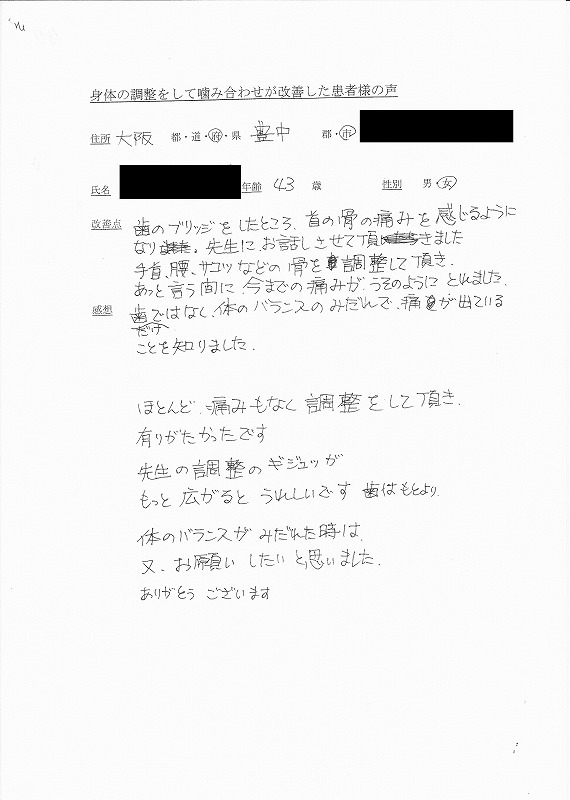 身体の調整をして噛み合わせが改善した患者様の声
住所 大阪 都・道・府・県 豊中 郡・市
氏名 年齢 43 歳 性別 男・女
改善点 歯のブリッジをしたところ、首の骨の痛みを感じるように
なり 先生にお話しさせて頂きました
手首、腰、サコツなどの骨を調整して頂き、
あっと言う間に今までの痛みがうそのようにとれました。
感想 歯だけではなく、体のバランスのみだれで、痛が出ている
ことを知りました。
ほとんど痛みもなく調整をして頂き、
有りがたかったです
先生の調整のギジュツが
もっと広がるとうれしいです 歯はもとより、
体のバランスがみだれた時は、
又、お願いしたいと思いました。
ありがとうございます